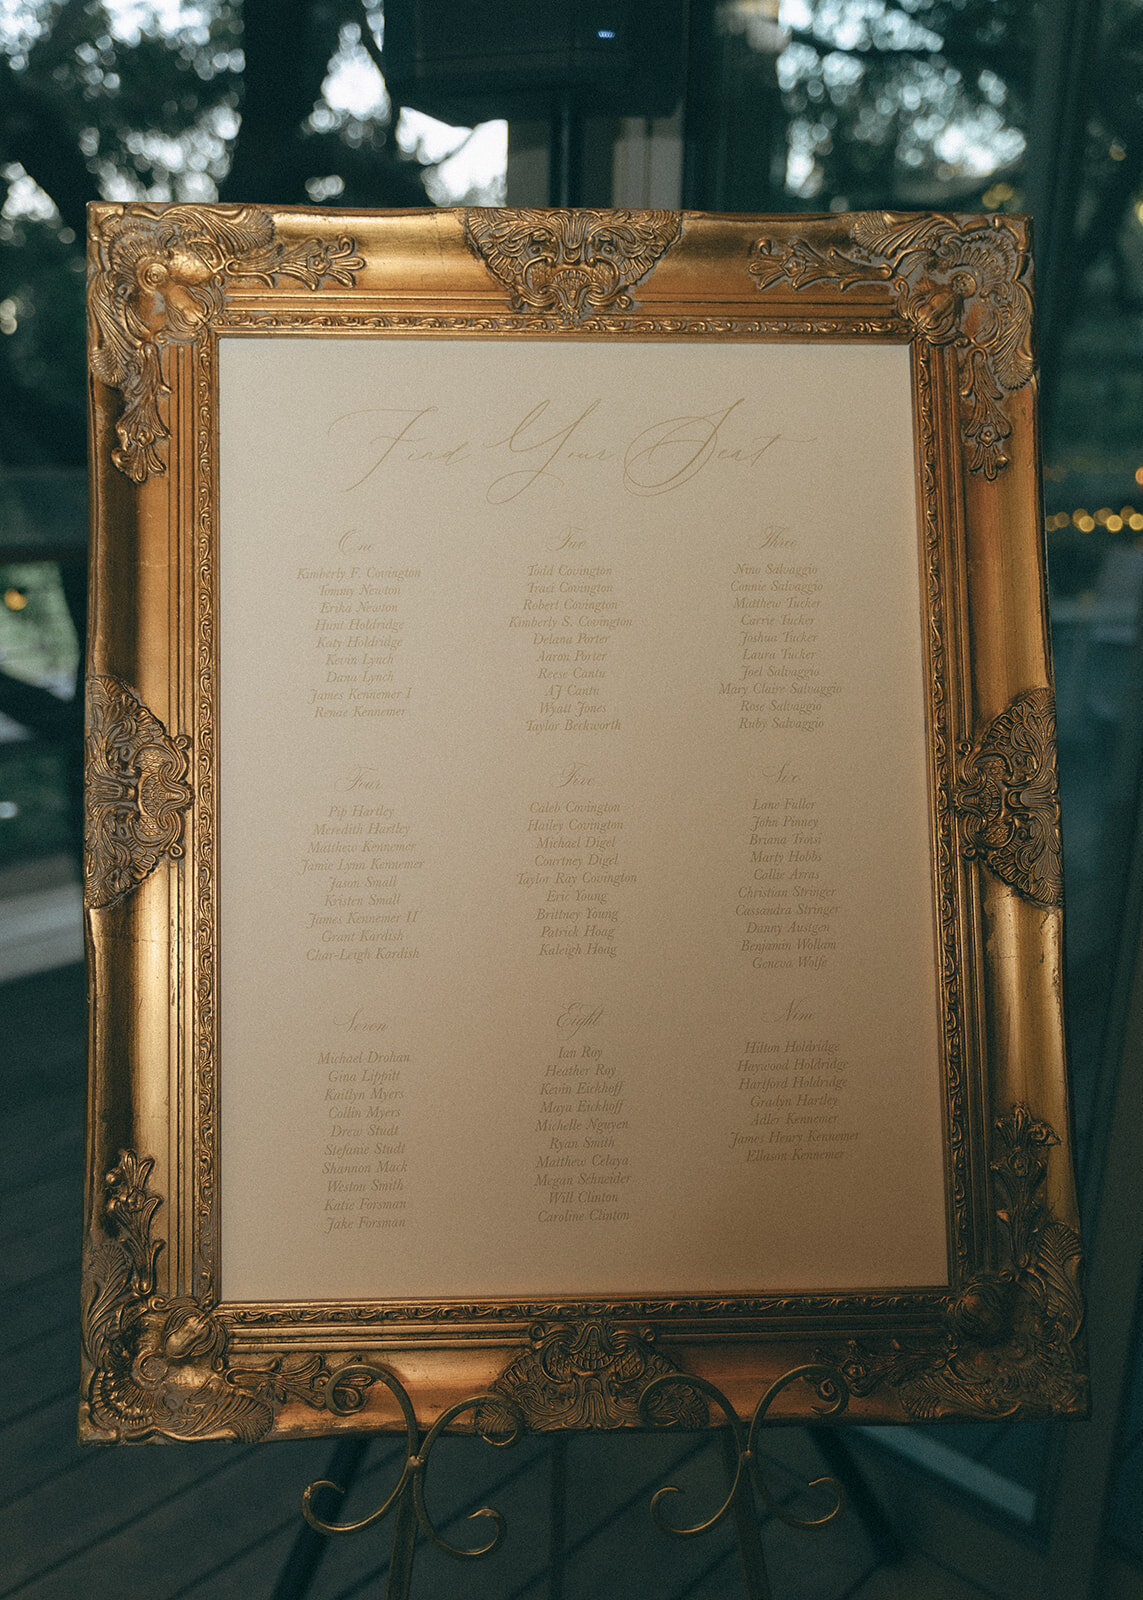 Find Your Seat
One
Kimberly F. Covington
Tommy Newton
Erika Newton
Hunt Holdridge
Katy Holdridge
Kevin Lynch
Dana Lynch
James Kennemer I
Renae Kennemer
Two
Todd Covington
Traci Covington
Robert Covington
Kimberly S. Covington
Delana Porter
Aaron Porter
Reese Cantu
AJ Cantu
Wyatt Jones
Taylor Beckworth
Three
Nino Salvaggio
Connie Salvaggio
Matthew Tucker
Carrie Tucker
Joshua Tucker
Laura Tucker
Joel Salvaggio
Mary Claire Salvaggio
Rose Salvaggio
Ruby Salvaggio
Four
Pip Hartley
Meredith Hartley
Matthew Kennemer
Jamie Lynn Kennemer
Jason Small
Kristen Small
James Kennemer II
Grant Kardish
Char-Leigh Kardish
Five
Caleb Covington
Hailey Covington
Michael Digel
Courtney Digel
Taylor Ray Covington
Eric Young
Brittney Young
Patrick Hoag
Kaleigh Hoag
Six
Lane Fuller
John Pinney
Briana Troisi
Marty Hobbs
Callie Arras
Christian Stringer
Cassandra Stringer
Danny Austgen
Benjamin Wollam
Geneva Wolfe
Seven
Michael Drohan
Gina Lippitt
Kaitlyn Myers
Collin Myers
Drew Studt
Stefanie Studt
Shannon Mack
Weston Smith
Katie Forsman
Jake Forsman
Eight
Ian Roy
Heather Roy
Kevin Eickhoff
Maya Eickhoff
Michelle Nguyen
Ryan Smith
Matthew Celaya
Megan Schneider
Will Clinton
Caroline Clinton
Nine
Hilton Holdridge
Haywood Holdridge
Hartford Holdridge
Gradyn Hartley
Adler Kennemer
James Henry Kennemer
Ellason Kennemer